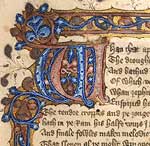 Whan that Ap
The droghte
And bathed
Of which v
Whan zeph
Inspired h
The tendre croppes and the yong
Hath in the Ram his half cours
And smale foweles maken melod
That slepen al the nyght